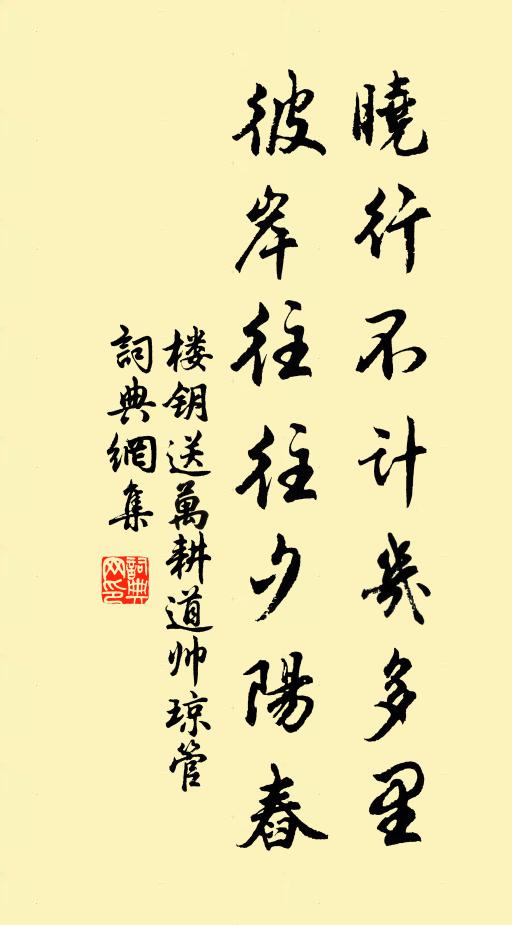 曉行不計幾多里
彼岸往往夕陽舂
楼钥送萬耕道帅琼管
詞典網集
詞典网印